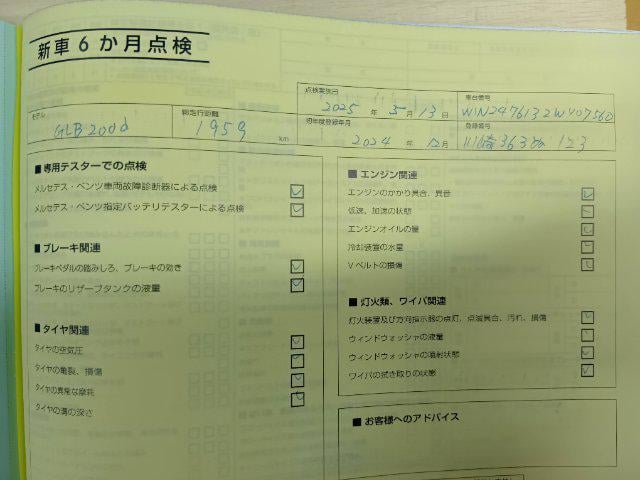 新車6か月点検
点検実施日
2025 年 5 月 13 日
車台番号
W1N2476132W
モデル
GLB200d
総走行距離
1959 km
初年度登録年月
2024 年 12 月
登録番号
川崎363 123
■ 専用テスターでの点検
メルセデス・ベンツ車両故障診断器による点検
メルセデス・ベンツ指定バッテリテスターによる点検
■ ブレーキ関連
ブレーキペダルの踏みしろ、ブレーキの効き
ブレーキのリザーブタンクの液量
■ タイヤ関連
タイヤの空気圧
タイヤの亀裂、損傷
タイヤの異常な摩耗
タイヤの溝の深さ
■ エンジン関連
エンジンのかかり具合、異音
低速、加速の状態
エンジンオイルの量
冷却装置の水量
Vベルトの損傷
■ 灯火類、ワイパ関連
灯火装置及び方向指示器の点灯、点滅具合、汚れ、損傷
ウィンドウォッシャの液量
ウィンドウォッシャの噴射状態
ワイパの拭き取りの状態
■ お客様へのアドバイス